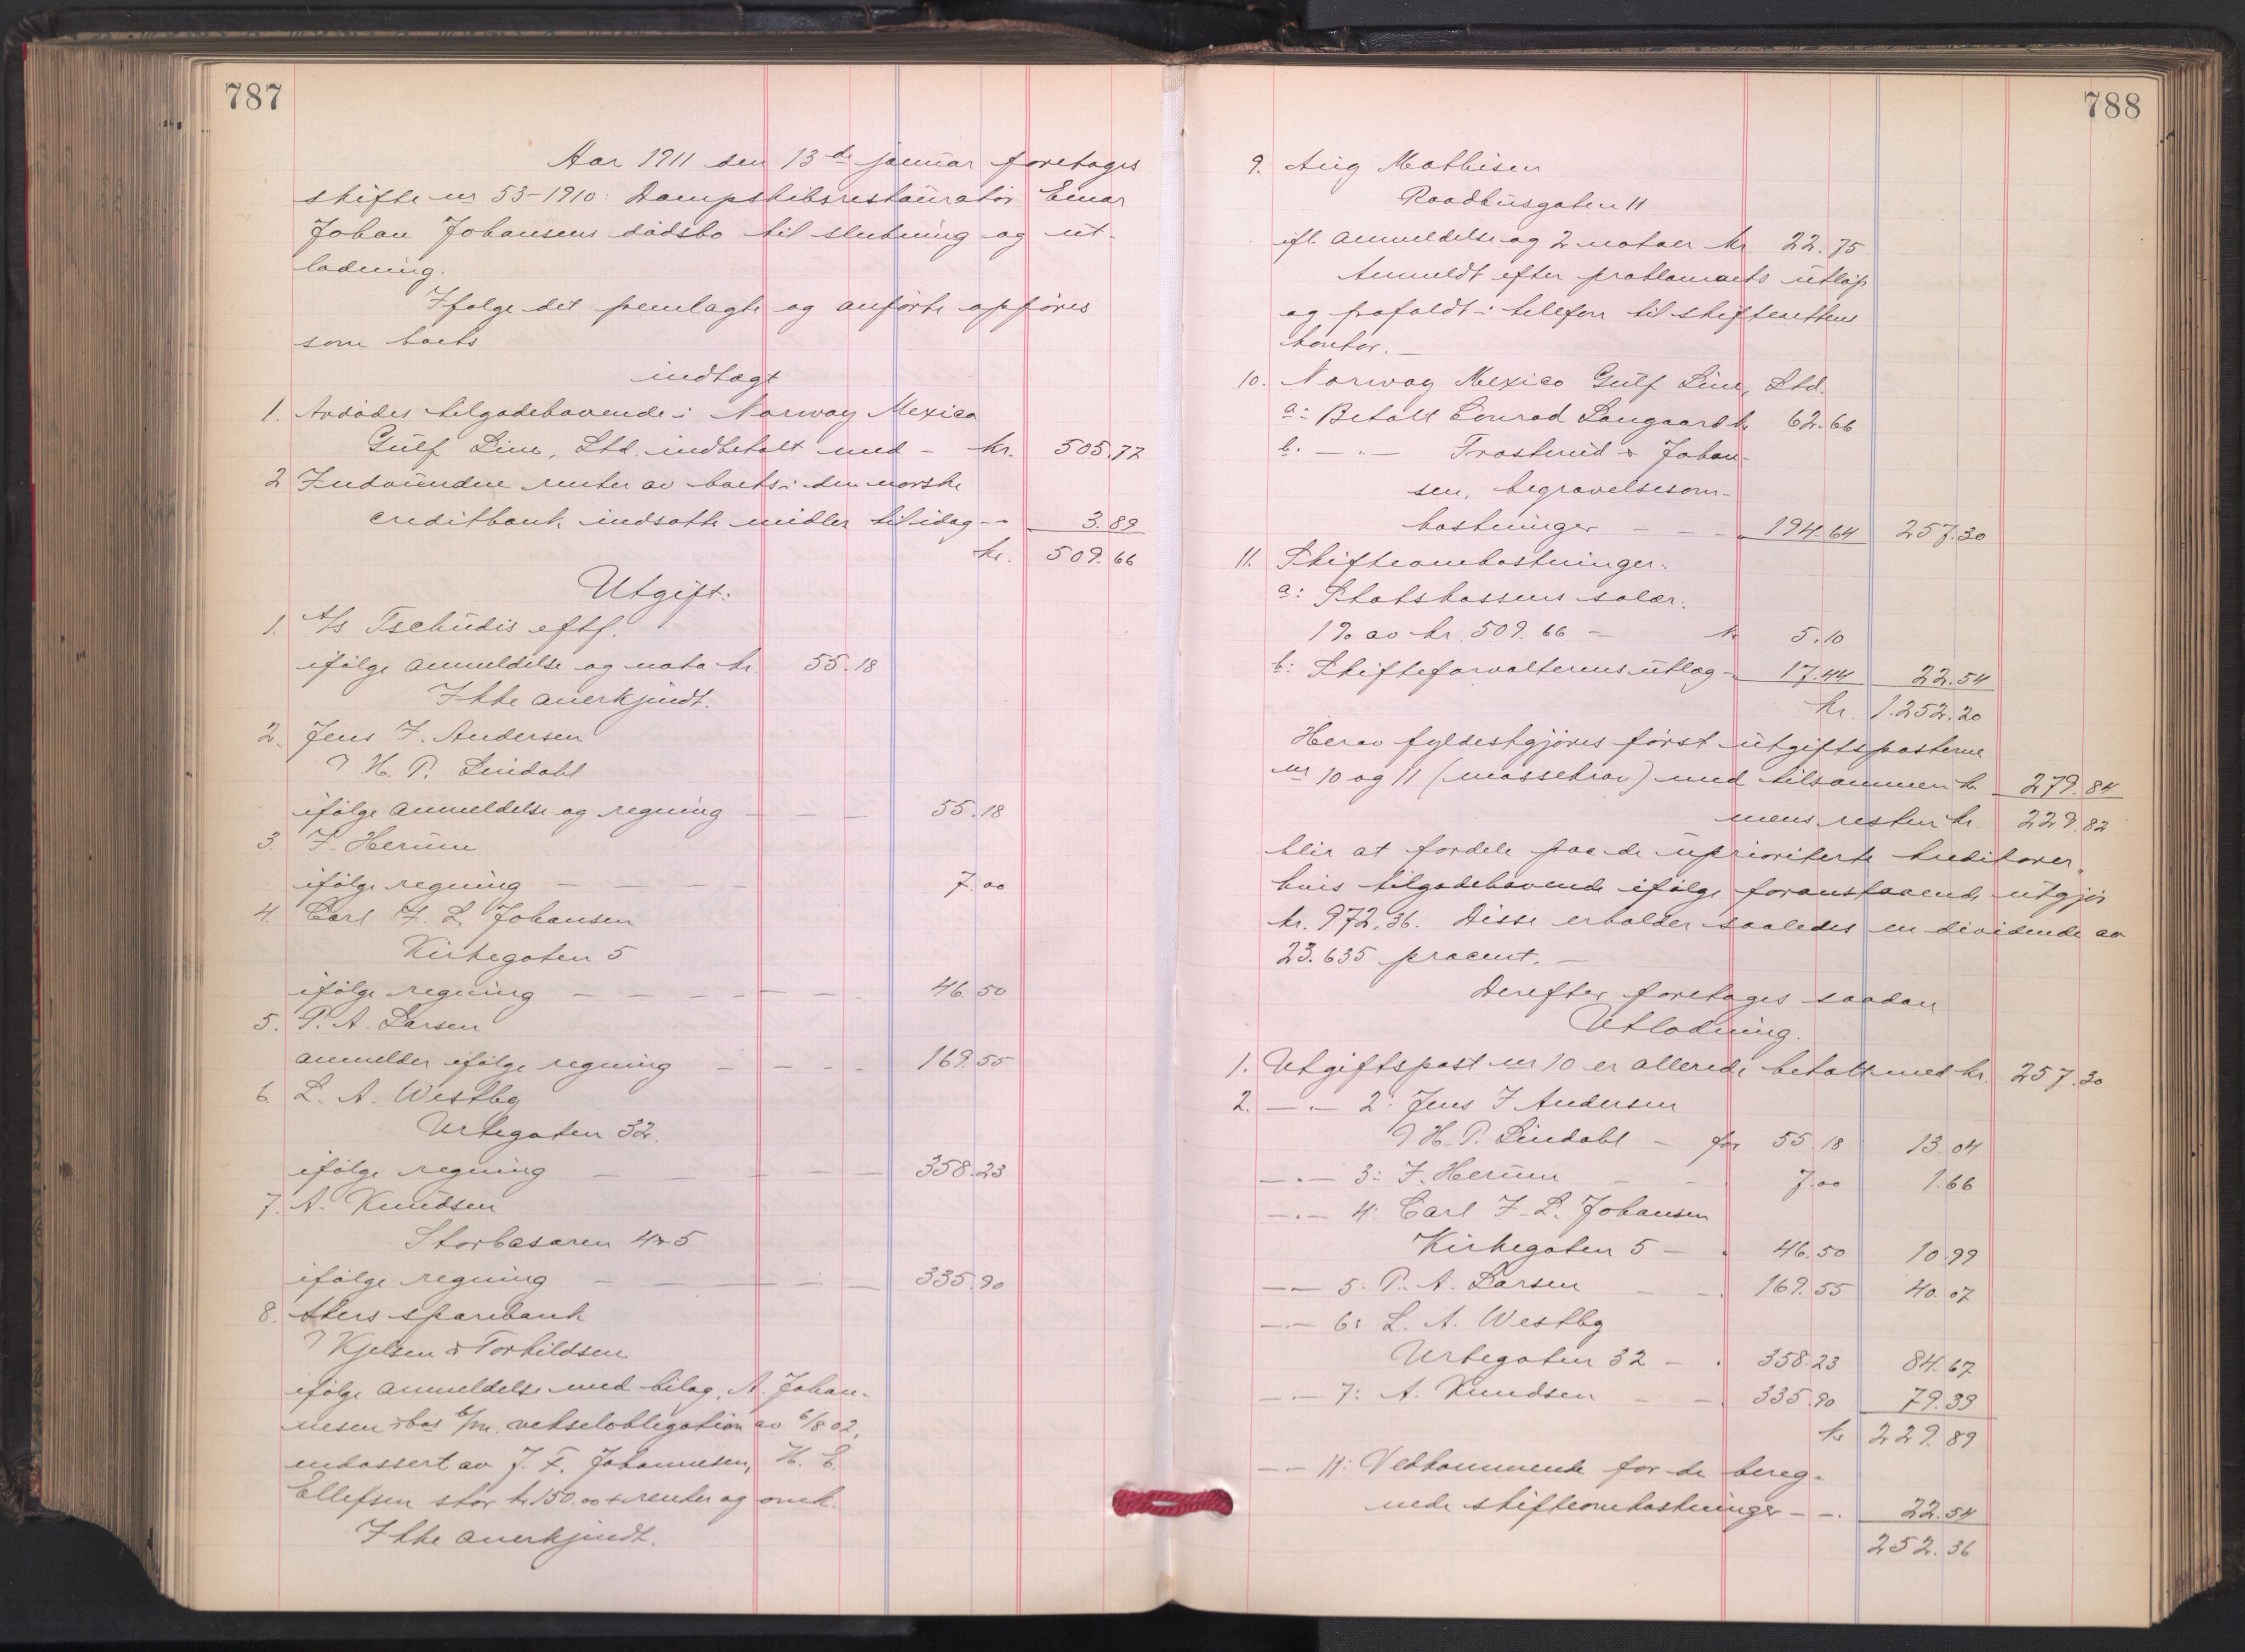 787
Aar 1911 den 13de januar foretages
skifte nr 53-1910: Dampskibsrestauratør Einar
Johan Johansens dødsbo til slutning og ut-
lodning.
Ifølge det fremlagte og anførte opføres
som boets
indtægt
1. Avdødes tilgodehavende i Norway Mexico
Gulf Line, Ltd. indbetalt med - kr. 505.77
2 Indvundne renter av boets i den norske
creditbank indsatte midler til idag - " 3.89
kr. 509.66
Utgift:
1. A/s Tschudis eftf.
ifølge anmeldelse og nota kr. 55.18
Ikke anerkjendt.
2. Jens F. Andersen
v/ H. P. Lindahl
ifølge anmeldelse og regning - - - 55.18
3. F. Herum
ifølge regning - - - - 7.00
4. Carl F. L. Johansen
Kirkegaten 5
ifølge regning - - - - - - - 46.50
5. P. A. Larsen
anmelder ifølge regning - - - - 169.55
6. L. A. Westby
Urtegaten 32.
ifølge regning - - - - - 358.23
7. A. Knudsen
Storbasaren 4 & 5
ifølge regning - - - - - - 335.90
8. Akers sparebank
v/ Kjelsen & Torkildsen
ifølge anmeldelse med bilag, A. Johan-
nesens bos 6/m. vekselobligation av 6/8 02,
endossert av J. F. Johannesen, H. E.
Ellefsen stor kr 150.00 + renter og omk.
Ikke anerkjendt.
788
9. Aug Mathisen
Raadhusgaten 11
ifl. anmeldelse og 2 notaer kr. 22.75
Anmeldt efter proklamaets utløp
og frafaldt i telefon til skifterettens
kontor. -
10. Norway Mexico Gulf Line, Ltd.
a: Betalt Conrad Langaard kr 62.66
b. - " - Frosterud & Johan-
sen, begravelsesom-
kostninger - - - " 194.64 257.30
11. Skifteomkostninger:
a: Statskassens salær:
1% av kr. 509.66 - kr 5.10
b: Skifteforvalterens utlæg - " 17.44 22.54
kr. 1.252.20
Herav fyldestgjøres først utgiftsposterne
nr 10 og 11 (massekrav) med tilsammen kr 279.84
mens resten kr. 229.82
blir at fordele paa de uprioriterte kreditorer,
hvis tilgodehavende ifølge foranstaaende utgjør
kr. 972.36. Disse erholder saaledes en dividende av
23.635 procent. -
Derefter foretages saadan
Utlodning.
1. Utgiftspost nr 10 er allerede betalt med kr. 257.30
2. - " - 2: Jens F Andersen
v/ H. P. Lindahl - for 55.18 13.04
- " - 3: F. Herum - - 7.00 1.66
- " - 4: Carl F. L. Johansen
Kirkegaten 5 - " 46.50 10.99
- " - 5: P. A. Larsen - - " 169.55 40.07
- " - 6: L. A. Westby
Urtegaten 32 - " 358.23 84.67
- " - 7: A. Knudsen - - " 335.90 79.39
kr 229.89
- " - 11: Vedkommende for de bereg-
nede skifteomkostninger - - " 22.54
252.36